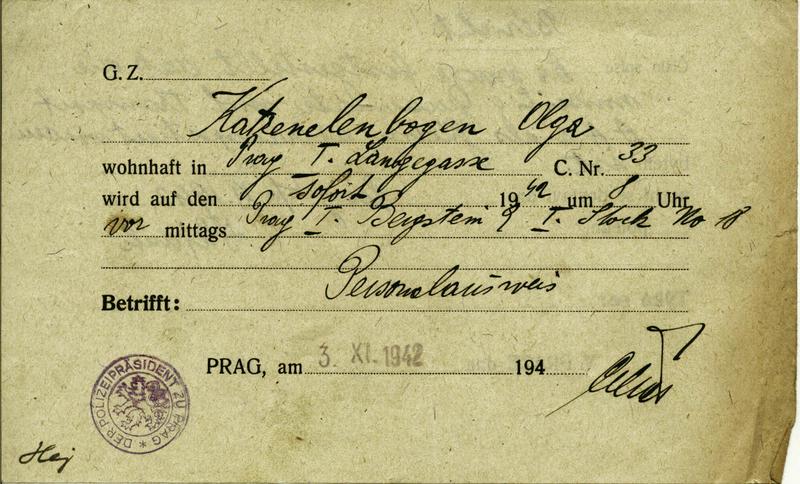 G. Z.
Katzenelenbogen Olga
wohnhaft in Prag I. Langegasse C. Nr. 33
wird auf den sofort 1942 um 8 Uhr
vor mittags Prag I. Bergstein 2 I. Stock No 18
Betrifft: Personalausweis
PRAG, am 3. XI. 1942 194
DER POLIZEIPRÄSIDENT ZU PRAG